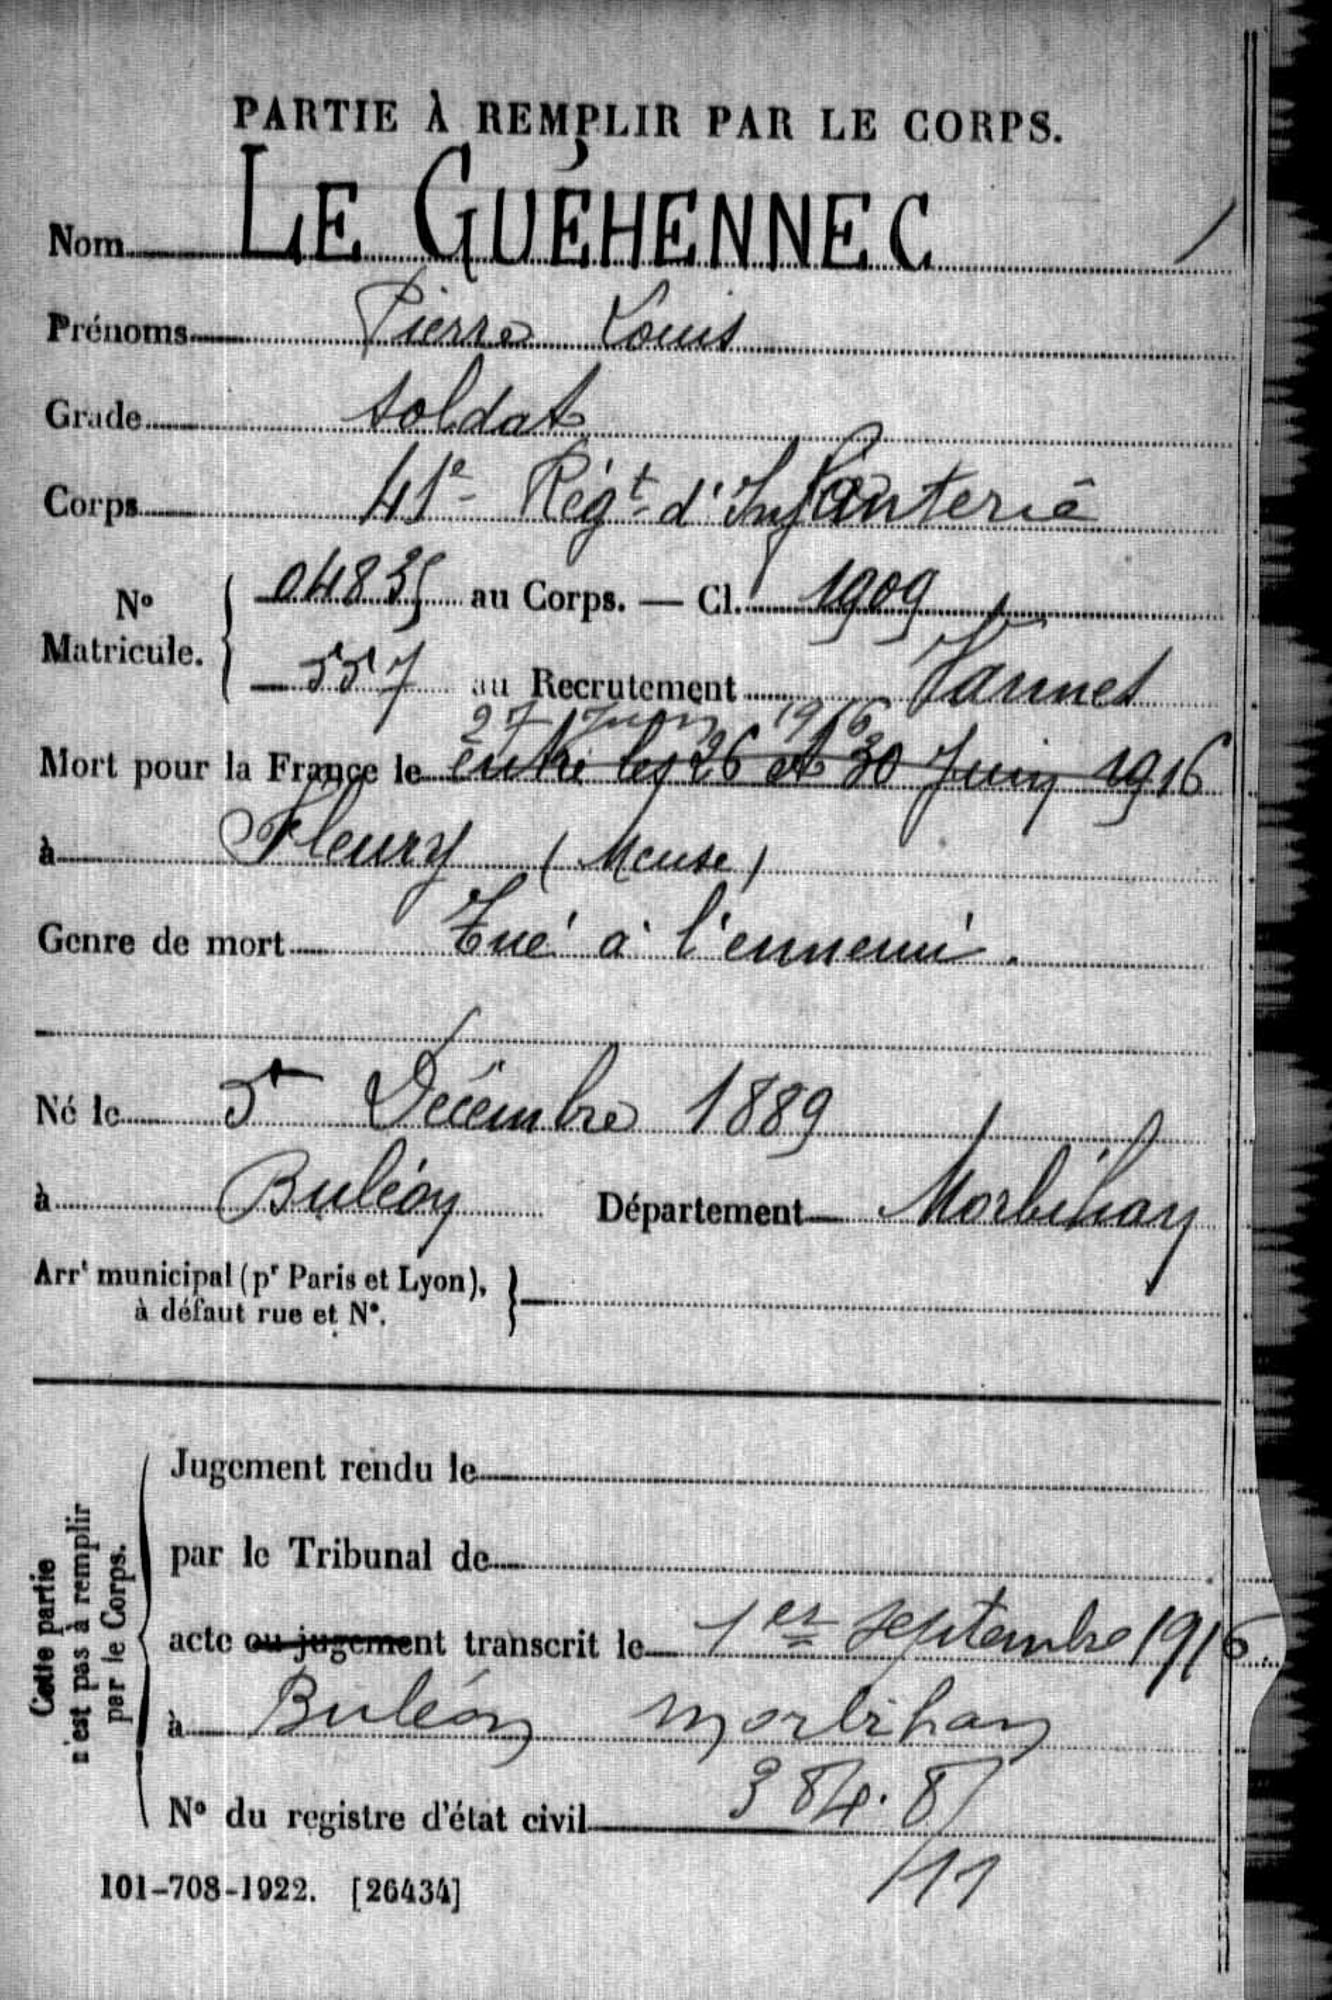 PARTIE À REMPLIR PAR LE CORPS.
Nom LE GUÉHENNEC
Prénoms Pierre Louis
Grade soldat
Corps 41e Régt d'Infanterie
No Matricule. 04835 au Corps. — Cl. 1909
557 au Recrutement Vannes
27 Juin 1916
Mort pour la France le entre les 26 et 30 Juin 1916
à Fleury (Meuse)
Genre de mort Tué à l'ennemi.
Né le 5 Décembre 1889
à Buléon Département Morbihan
Arrt municipal (pr Paris et Lyon),
à défaut rue et No.
Cette partie
n'est pas à remplir
par le Corps.
Jugement rendu le
par le Tribunal de
acte ou jugement transcrit le 1er septembre 1916.
à Buléon Morbihan
No du registre d'état civil 384.8/
/11
101-708-1922. [26434]